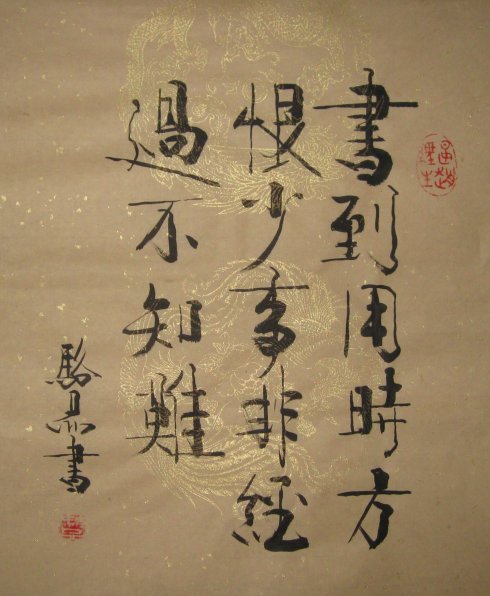 書到用時方
恨少事非經
過不知難